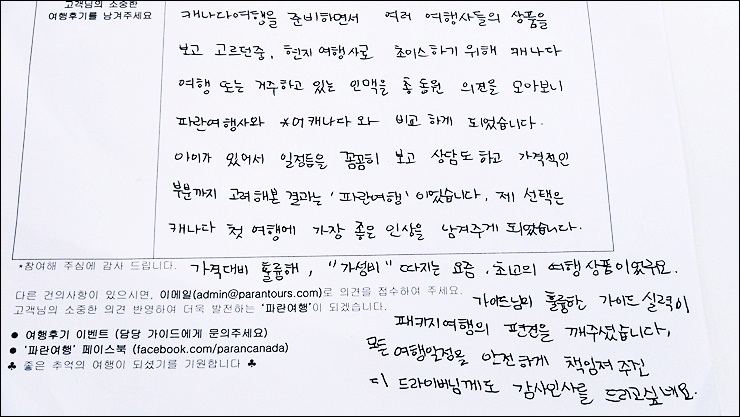 고객님의 소중한
여행후기를 남겨주세요
캐나다여행을 준비하면서 여러 여행사들의 상품을
보고 고르던중, 현지여행사로 초이스하기 위해 캐나다
여행 또는 거주하고 있는 인맥을 총동원 의견을 모아보니
파란여행사와 *어캐나다와 비교하게 되었습니다.
아이가 있어서 일정등을 꼼꼼히 보고 상담도하고 가격적인
부분까지 고려해본 결과는 '파란여행' 이었습니다. 제 선택은
캐나다 첫 여행에 가장 좋은 인상을 남겨주게 되었습니다.
*참여해 주심에 감사 드립니다. 가격대비 훌륭해, "가성비" 따지는 요즘, 최고의 여행상품이었구요.
다른 건의사항이 있으시면, 이메일(admin@parantours.com)로 의견을 접수하여 주세요.
고객님의 소중한 의견 반영하여 더욱 발전하는 '파란여행'이 되겠습니다.
가이드님의 훌륭한 가이드 실력이
패키지여행의 편견을 깨주셨습니다.
● 여행후기 이벤트 (담당 가이드에게 문의주세요)
● '파란여행' 페이스북 (facebook.com/parancanada)
♣ 좋은 추억의 여행이 되셨기를 기원합니다 ♣
모든 여행일정을 안전하게 책임져 주신
드라이버님께도 감사인사를 드리고싶네요.